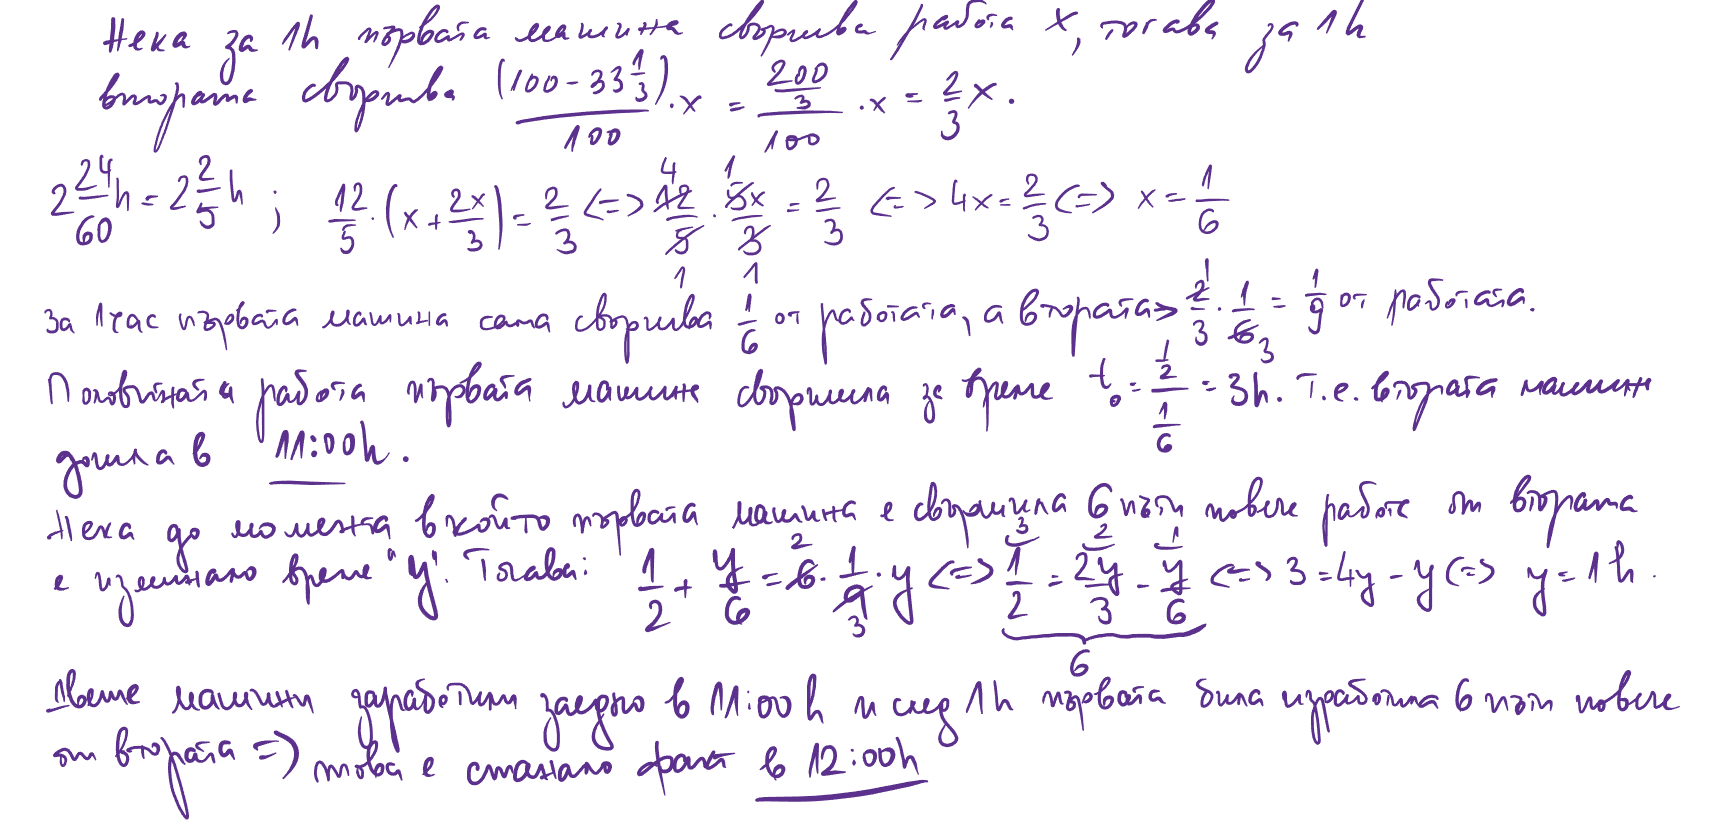 Нека за 1h първата машина свършва работа x, тогава за 1h
втората свършва (100 - 33 1/3)/100 · x = (200/3)/100 · x = 2/3 x.
2 24/60 h = 2 2/5 h ; 12/5 · (x + 2x/3) = 2/3 <=> 12/5 · 5x/3 = 2/3 <=> 4x = 2/3 <=> x = 1/6
За 1 час първата машина сама свършва 1/6 от работата, а втората -> 2/3 · 1/6 = 1/9 от работата.
Половината работа първата машина свършила за време t₀ = (1/2)/(1/6) = 3h. Т.е. втората машина
дошла в 11:00h.
Нека до момента в който първата машина е свършила 6 пъти повече работа от втората
е изминало време "y". Тогава: 1/2 + y/6 = 6 · 1/9 · y <=> 1/2 = 2y/3 - y/6 <=> 3 = 4y - y <=> y = 1h.
6
Двете машини заработили заедно в 11:00h и след 1h първата била изработила 6 пъти повече
от втората => това е станало факт в 12:00h